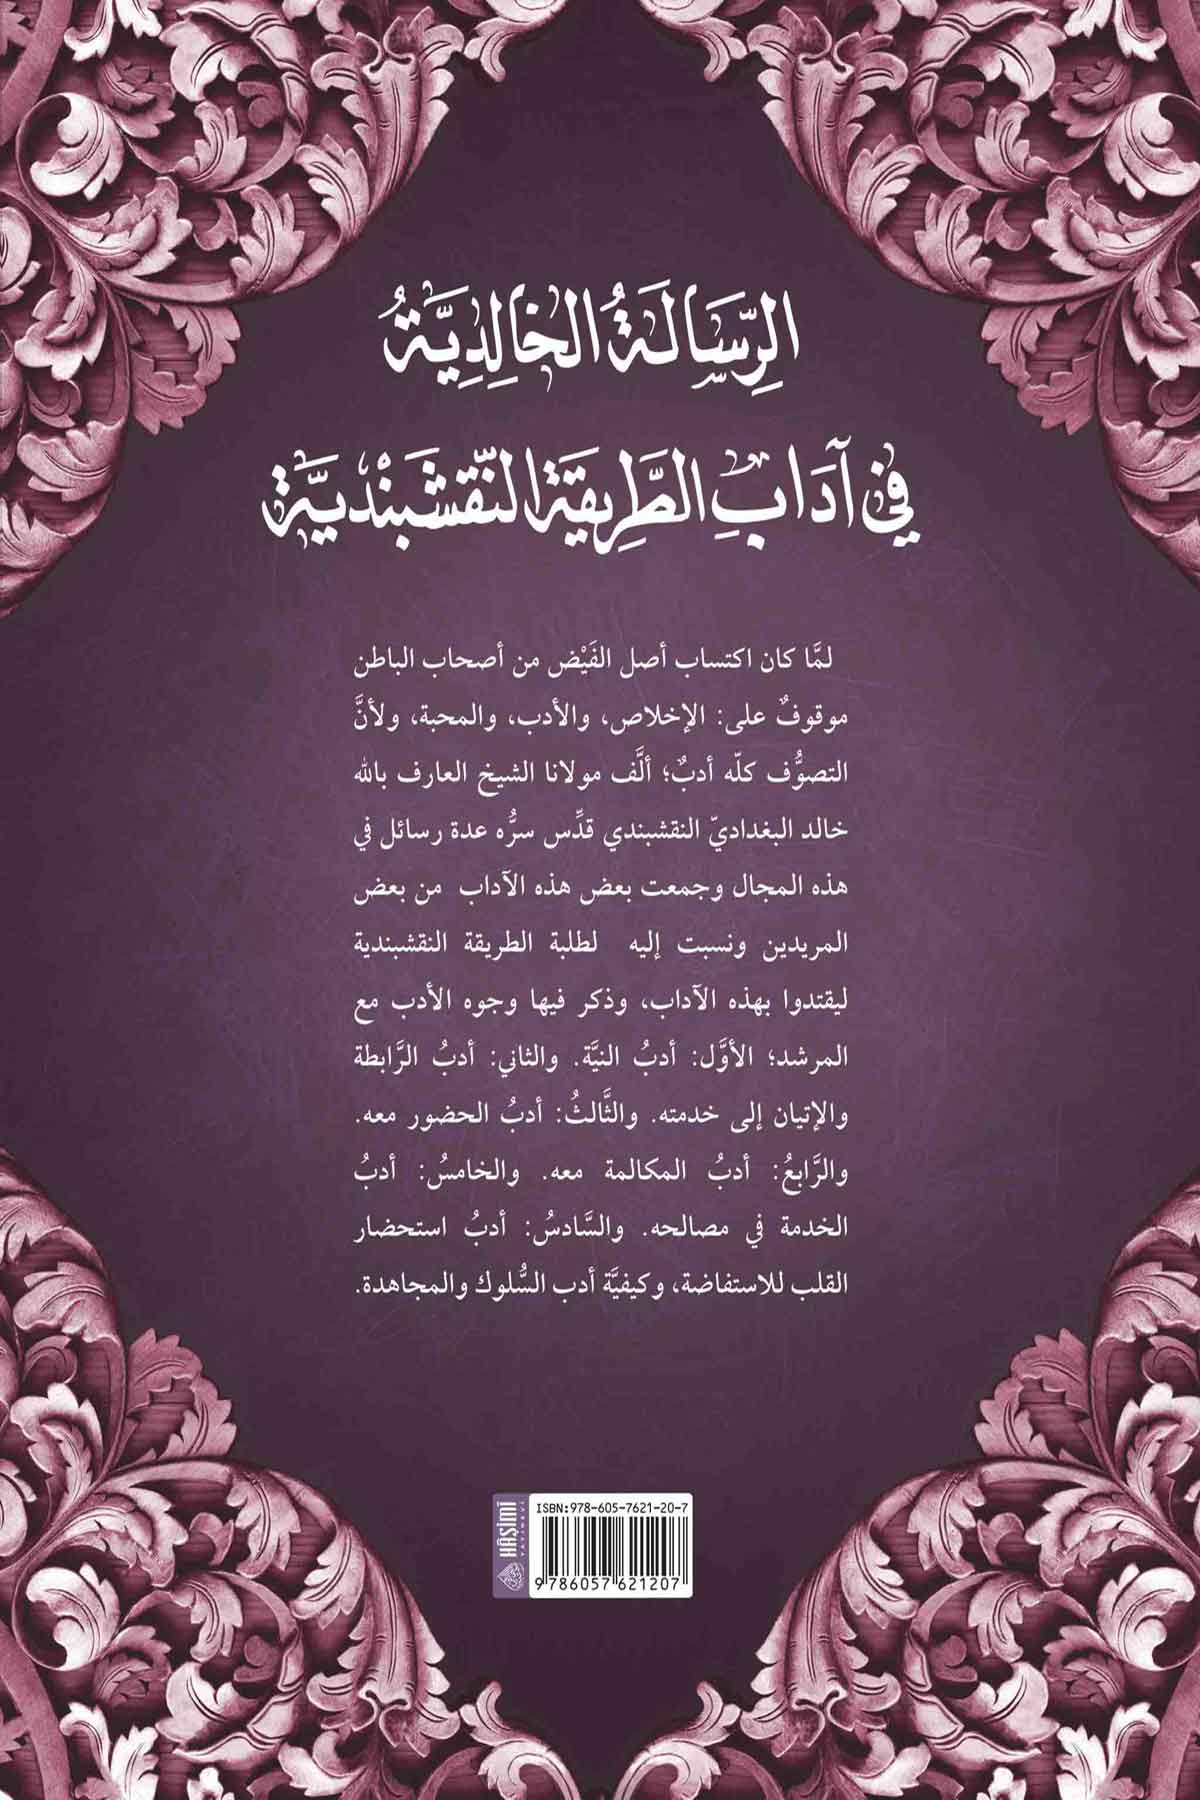 الرِّسَالَةُ الخَالِدِيَّةُ
في آدَابِ الطَّرِيقَةِ النَّقْشَبَنْدِيَّةِ
لمَّا كان اكتساب أصل الفَيْض من أصحاب الباطن
موقوفٌ على: الإخلاص، والأدب، والمحبة، ولأنَّ
التصوُّف كلّه أدبٌ؛ ألَّف مولانا الشيخ العارف بالله
خالد البغداديّ النقشبندي قدِّس سرُّه عدة رسائل في
هذه المجال وجمعت بعض هذه الآداب من بعض
المريدين ونسبت إليه لطلبة الطريقة النقشبندية
ليقتدوا بهذه الآداب، وذكر فيها وجوه الأدب مع
المرشد؛ الأوَّل: أدبُ النيَّة. والثاني: أدبُ الرَّابطة
والإتيان إلى خدمته. والثَّالثُ: أدبُ الحضور معه.
والرَّابعُ: أدبُ المكالمة معه. والخامسُ: أدبُ
الخدمة في مصالحه. والسَّادسُ: أدبُ استحضار
القلب للاستفاضة، وكيفيَّة أدب السُّلوك والمجاهدة.
HÂŞİMÎ
YAYINEVİ
ISBN:978-605-7621-20-7
9 786057 621207